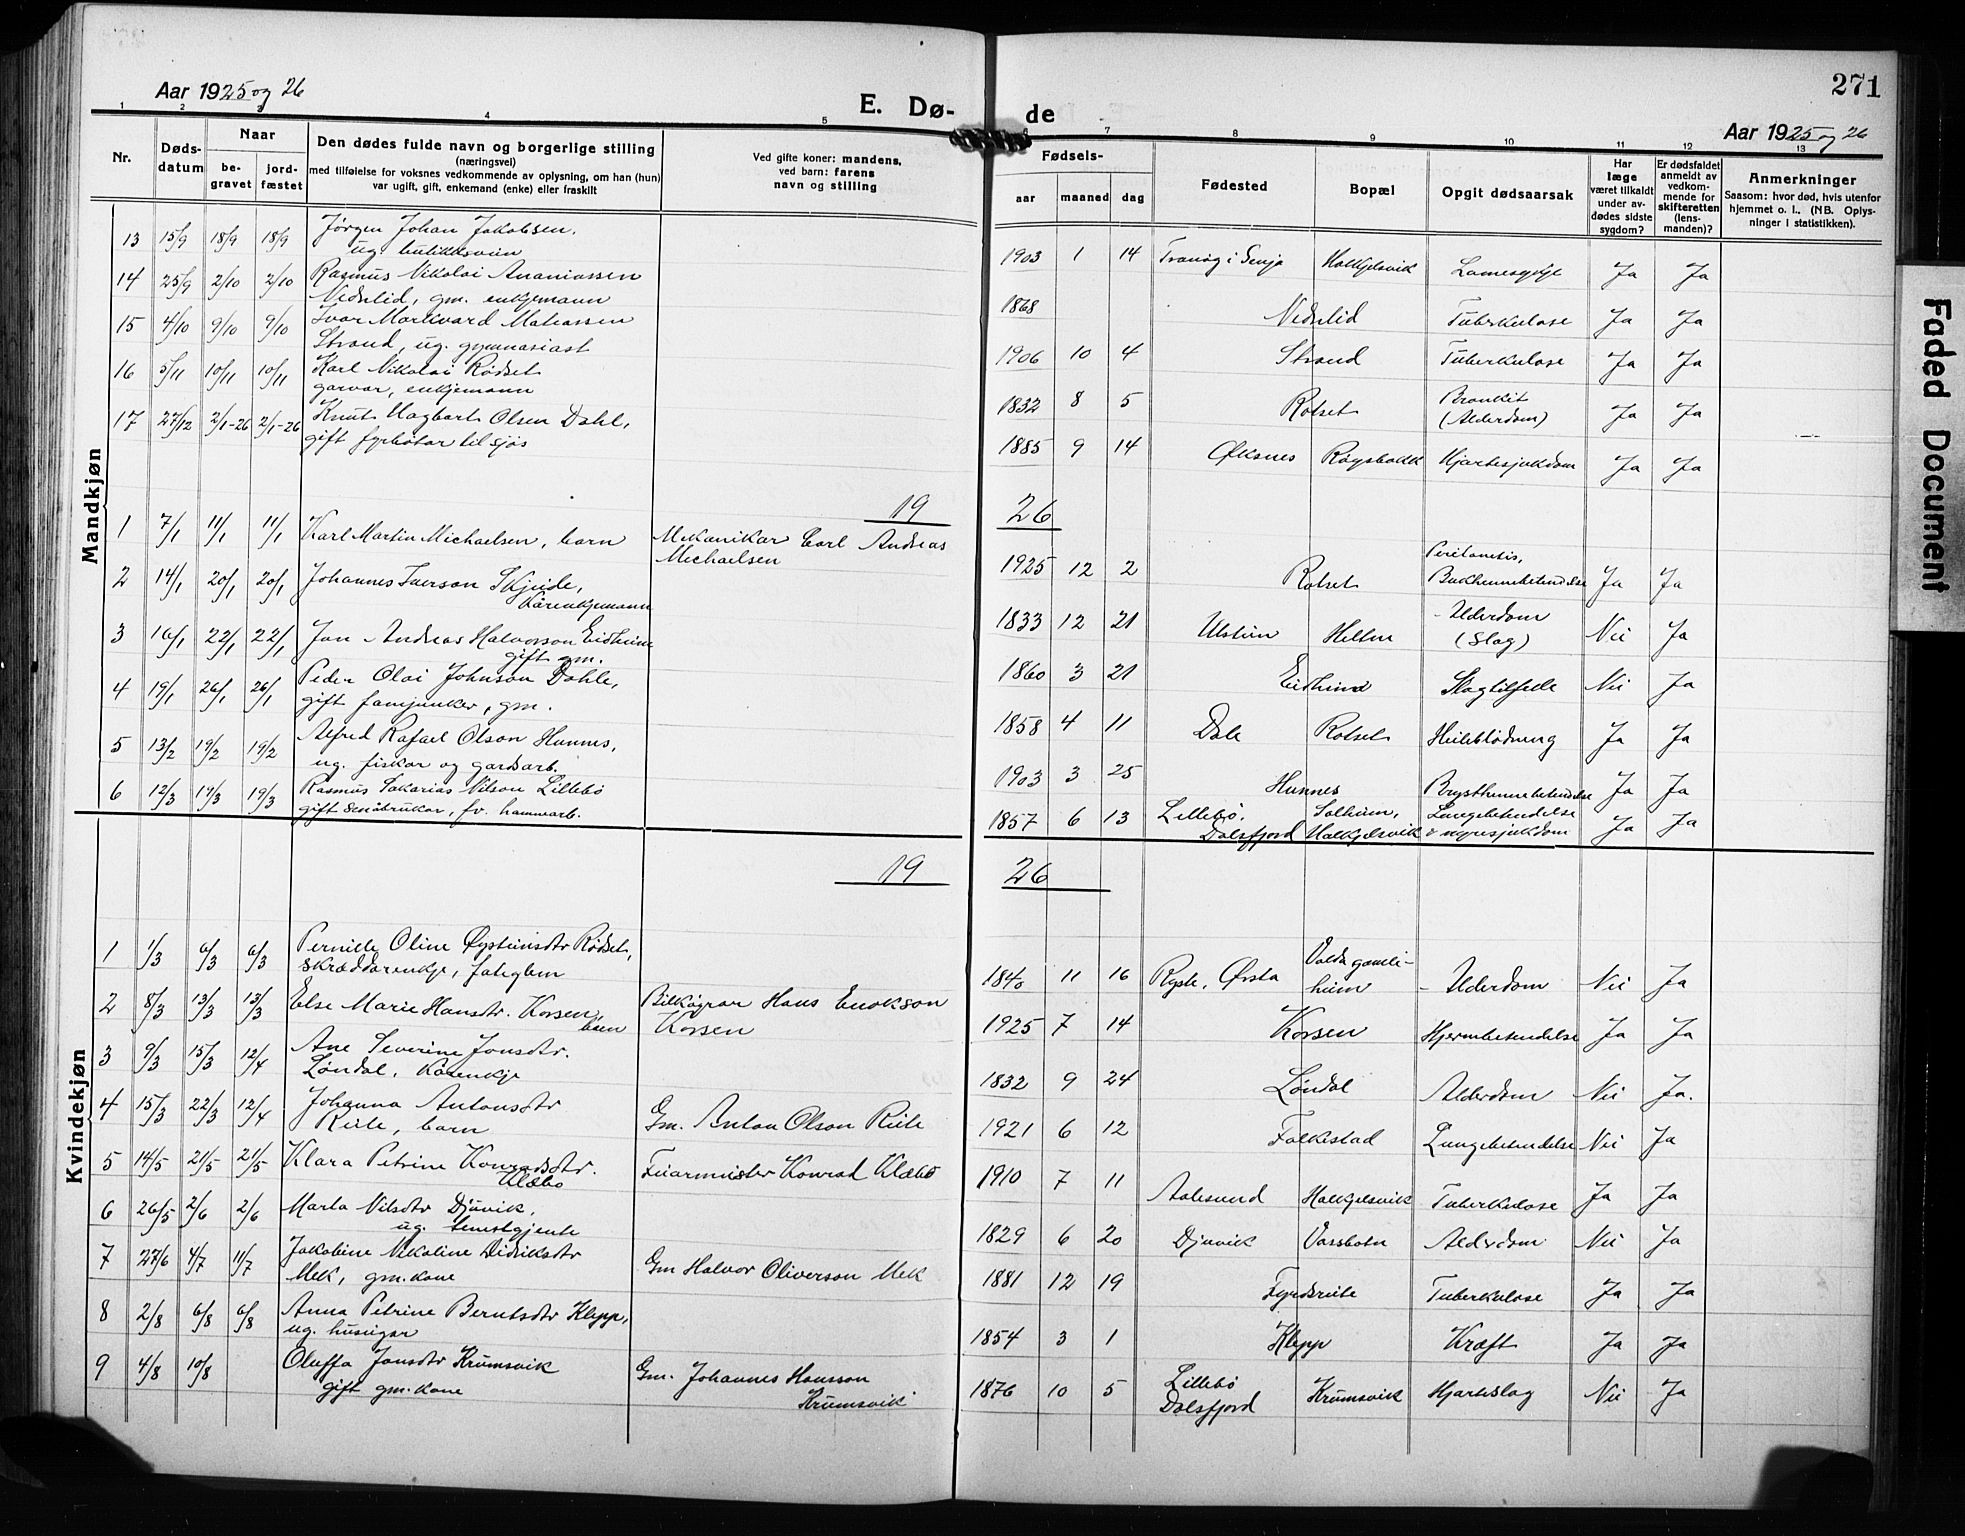 271
Aar 1925 og 26
E. Dø-
de
Aar 1925 og 26
1 2 3 4 5 6 7 8 9 10 11 12 13
Nr.
Døds-
datum
Naar
be-
gravet
jord-
fæstet
Den dødes fulde navn og borgerlige stilling
(næringsvei)
med tilføielse for voksnes vedkommende av oplysning, om han (hun)
var ugift, gift, enkemand (enke) eller fraskilt
Ved gifte koner: mandens,
ved barn: farens
navn og stilling
Fødsels-
aar maaned dag
Fødested
Bopæl
Opgit dødsaarsak
Har
læge
været tilkaldt
under av-
dødes sidste
sygdom?
Er dødsfaldet
anmeldt av
vedkom-
mende for
skifteretten
(lens-
manden)?
Anmerkninger
Saasom: hvor død, hvis utenfor
hjemmet o. l.. (NB. Oplys-
ninger i statistikken).
Mandkjøn
13 15/9 18/9 18/9 Jørgen Johan Jakobsen,
ug. butikksvein
1903 1 14 Tranøy i Senja Halkjelsvik Lamesykje Ja Ja
14 25/9 2/10 2/10 Rasmus Nikolai Ananiassen
Nedrelid, gm. enkjemann
1868 Nedrelid Tuberkulose Ja Ja
15 4/10 9/10 9/10 Ivar Markvard Matiassen
Strand, ug. gymnasiast
1906 10 4 Strand Tuberkulose Ja Ja
16 5/11 10/11 10/11 Karl Nikolai Rødset
garvar, enkjemann
1832 8 5 Rotset Bronkit
(Alderdom) Ja Ja
17 27/12 2/1-26 2/1-26 Knut Hagbart Olsen Dahl,
gift fyrbøtar til sjøs
1885 9 14 Øksnes Røysbakk Hjartesjukdom Ja Ja
19 26
1 7/1 11/1 11/1 Karl Martin Michaelsen, barn Mekanikar Carl Andreas
Michaelsen
1925 12 2 Rotset Peritonitis,
Bukhinnebetendelse Ja Ja
2 14/1 20/1 20/1 Johannes Iverson Skjeide,
kårenkjemann
1833 12 21 Ulstein Heltne Alderdom
(Slag) Nei Ja
3 16/1 22/1 22/1 Jon Andreas Halvorson Eidheim
gift gm.
1860 3 21 Eidheim Slagtilfelle Nei Ja
4 19/1 26/1 26/1 Peder Olai Johnson Dahle,
gift fanejunker, gm.
1858 4 11 Dale Rotset Heileblødning Ja Ja
5 13/2 19/2 19/2 Alfred Rafael Olson Hunnes,
ug. fiskar og gardsarb.
1903 3 25 Hunnes Brysthinnebetendelse Ja Ja
6 12/3 19/3 19/3 Rasmus Sakarias Nilson Lillebø
gift småbrukar, fv. hamnearb.
1857 6 13 Lillebø,
Dalsfjord Solheim,
Halkjelsvik Lungebetendelse
& nyresjukdom Ja Ja
19 26
Kvindekjøn
1 1/3 6/3 6/3 Pernille Oline Øysteinsdtr Rødset,
skræddarenkje, fatiglem
1840 11 16 Ryste, Ørsta Volda gamle-
heim Alderdom Nei Ja
2 8/3 13/3 13/3 Else Marie Hansdtr. Korsen,
barn Bilkøyrar Hans Enokson
Korsen
1925 7 14 Korsen Hjernebetendelse Ja Ja
3 9/3 15/3 12/4 Ane Severine Jonsdtr.
Løndal, Kårenkje
1832 9 24 Løndal Alderdom Nei Ja.
4 15/3 22/3 12/4 Johanna Antonsdtr
Reite, barn Gm. Anton Olson Reite
1921 6 12 Folkestad Lungebetendelse Nei Ja
5 14/5 21/5 21/5 Klara Petrine Konradsdtr.
Klæbo Fuarmeister Konrad Klæbo
1910 7 11 Aalesund Halkjelsvik Tuberkulose Ja Ja
6 26/5 2/6 2/6 Marta Nilsdtr Djuvik,
ug. tenestgjente
1829 6 20 Djuvik Vassbotn Alderdom Nei Ja
7 27/6 4/7 11/7 Jakobine Nikoline Didriksdtr
Mek, gm.kone Gm Halvor Oliverson Mek
1881 12 19 Fyrdsreite Tuberkulose Ja Ja
8 2/8 6/8 6/8 Anna Petrine Berntsdtr Klepp,
ug. huseigar
1854 3 1 Klepp Kræft Ja Ja
9 4/8 10/8 Oluffa Jonsdtr Krumsvik
gift gm.kone Gm. Johannes Hansson
Krumsvik
1876 10 5 Lillebø
Dalsfjord Krumsvik Hjarteslag Nei Ja
Faded Document